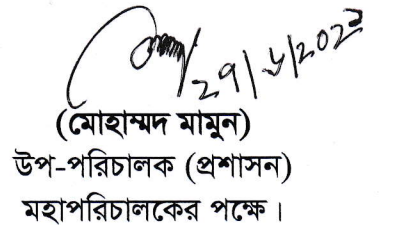 (মোহাম্মদ মামুন)
উপ-পরিচালক (প্রশাসন)
মহাপরিচালকের পক্ষে।